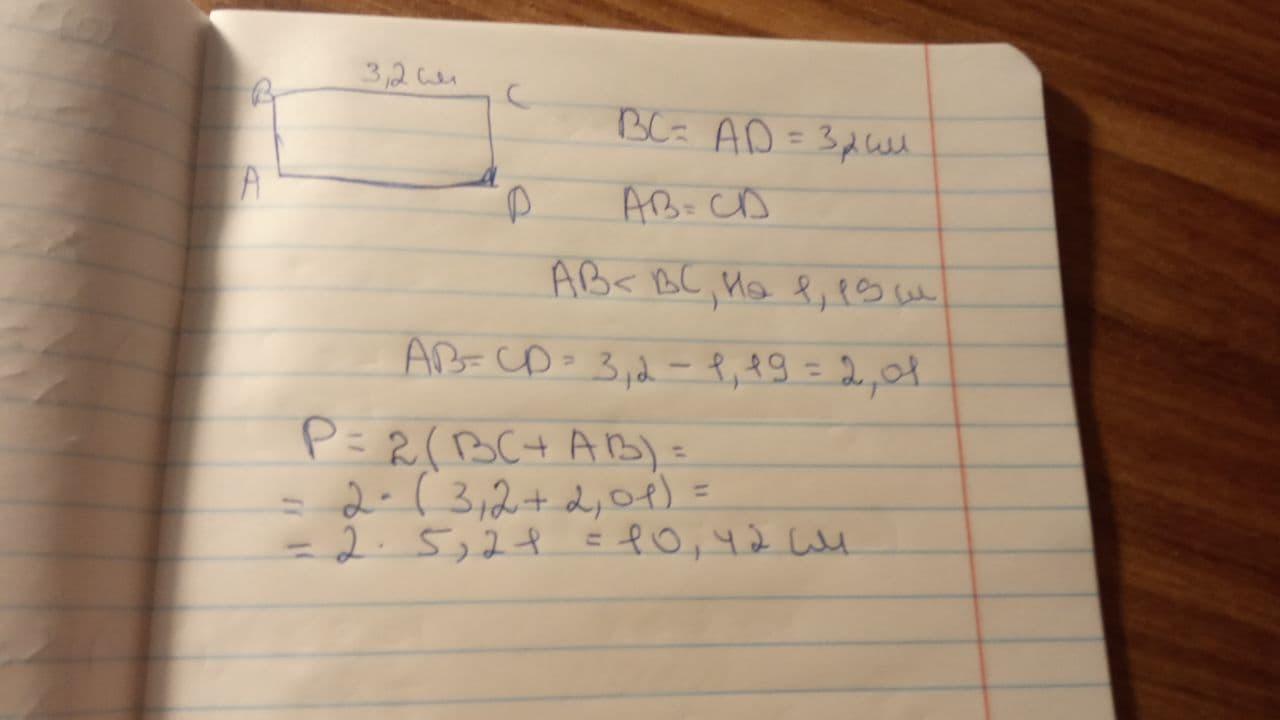 3,2 см
B
C
BC = AD = 3,2 см
A
D
AB = CD
AB < BC, на 1,19 см
AB = CD = 3,2 - 1,19 = 2,01
P = 2(BC + AB) =
= 2 · (3,2 + 2,01) =
= 2 · 5,21 = 10,42 см